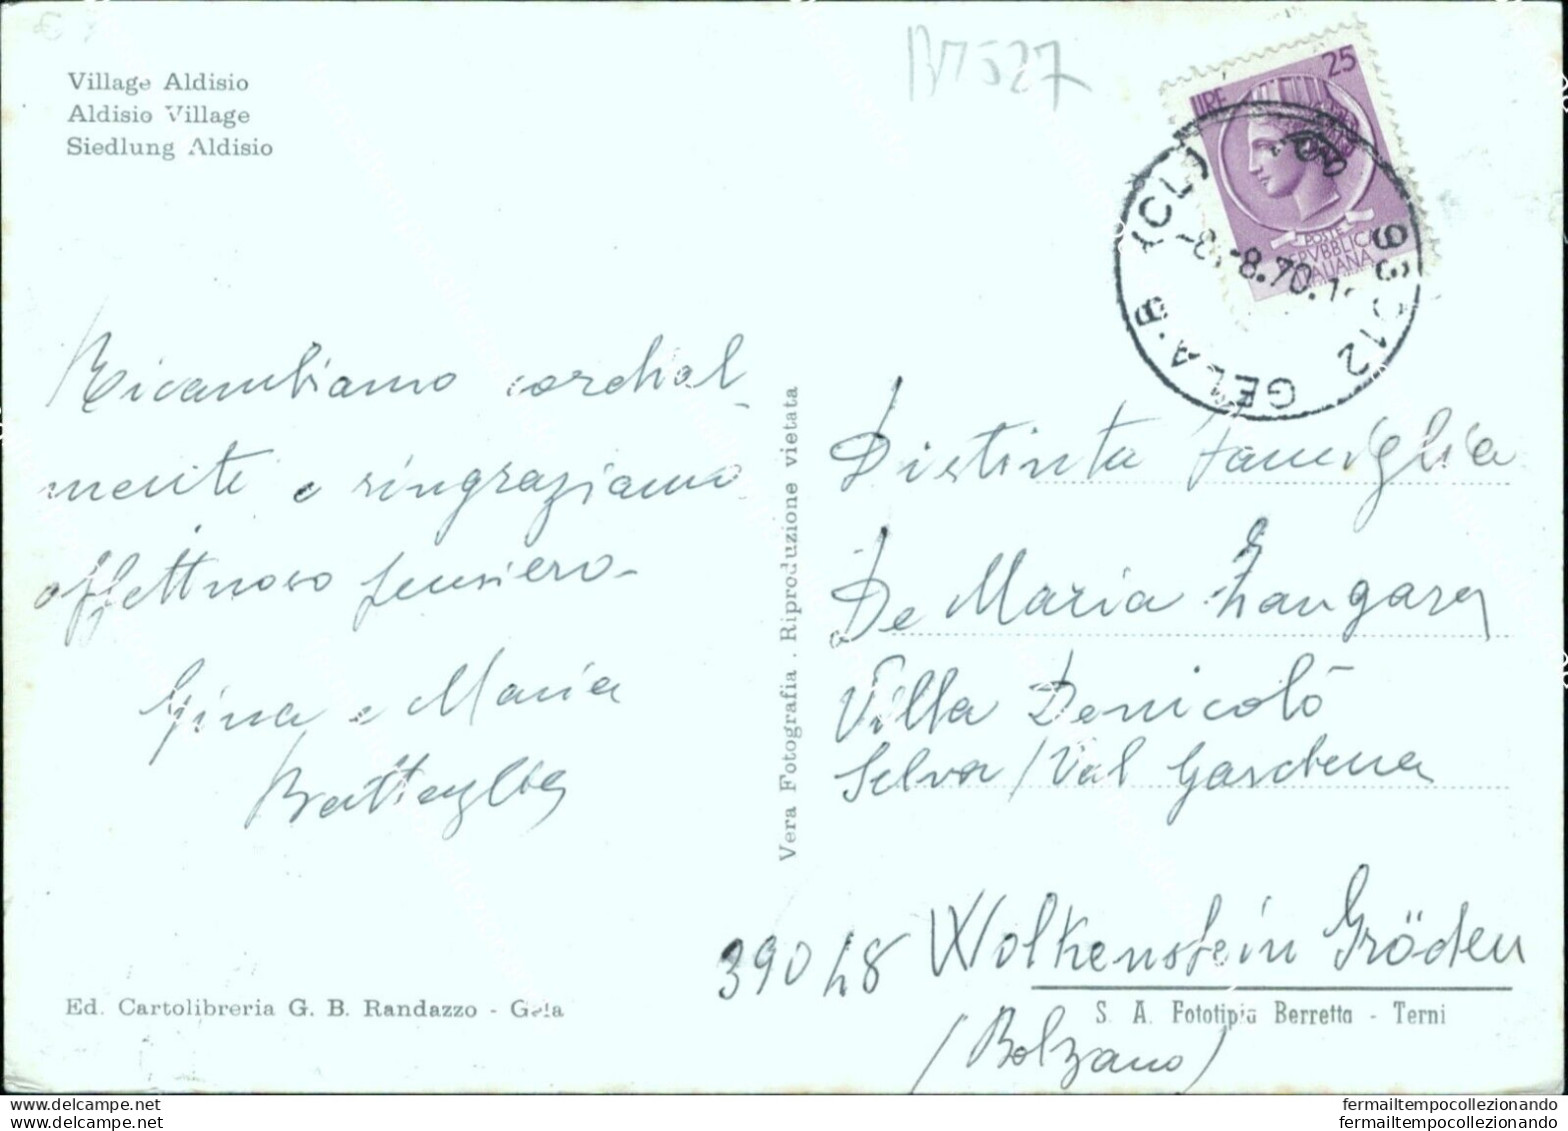 Village Aldisio
Aldisio Village
Siedlung Aldisio
B7527
LIRE 25
POSTE
REPVBBLICA
ITALIANA
93012 GELA·B (CL)
-8.70.
Ricambiamo cordial-
mente e ringraziamo
affettuoso pensiero-
Gina e Maria
Battaglia
Vera Fotografia . Riproduzione vietata
Distinta Famiglia
De Maria Zangara
Villa Denicolò
Selva / Val Gardena
39048 Wolkenstein Gröden
(Bolzano)
Ed. Cartolibreria G. B. Randazzo - Gela
S. A. Fototipia Berretta - Terni
www.delcampe.net
fermailtempocollezionando
www.delcampe.net
fermailtempocollezionando